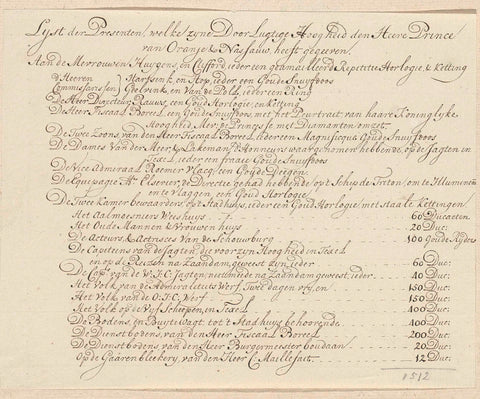 Lyst der Presenten, welke zyne Door Lugtige Hoogheid den Heere Prince
van Oranje & Nassauw, heeft gegeven.
Aan de Merrouwen Huygens, en Clifford, ieder een geamailleerd Repetitie Horlogie, & Ketting
d'Heeren Commissarissen Harfsenk, en Hop, ieder een Goude Snuyfdoos
Geelvink, en Van de Poll, ieder een Ring
De Heer Directeur Rauws, een Goud Horlogie, en Ketting
De Heer Fiscaal Boreel, een Goude Snuyfdoos, met het Pourtrait van haare Koninglyke
Hoogheid Mevr: de Princesse met Diamanten omzet
De Twee Zoons van den Heer Fiscaal Boreel, ieder een Magnifique Goude Snuyfdoos
De Dames Van der Meer & Lekeman d'Honneurs waargenomen hebbende, op de Jagten en
Texel, ieder een fraaije Goude Snuyfdoos
De Vice Admiraal Roemer Vlacq, een Goude Deigen
De Equipagie Mr. Elsevier, de Directie gehad hebbende, op't Schip de Triton, om te Illumineeren
en te Vlaggen, een Goud Horlogie
De Twee Kamerbewaarders, op't Stadhuys, ieder een Goud Horlogie, met Staale Kettingen
Het Aalmoesniers Weeshuys 60 Ducaeten
Het Oude Mannen & Vrouwen huys 20 Duc:
De Acteurs, & Actrises Van de Schouwburg 100 Goude Ryders
De Capiteins van de Jagten, die voor zyn Hoogheid in Texel
en op de Reizen na Zaandam geweest zyn, ieder 60 Duc:
De Cap:ns van de W:I:C: Jagten, net meede na Zaandam geweest, ieder 40 Duc:
Het Volk van de Admiraliteits Werf, Twee dagen vry, en 150 Duc:
Het Volk van de O:I:C: Werf 150 Duc:
Het Volk op de Vyf Scheepen, en Texel 400 Duc:
De Bodens, en Buyte Wagt, tot 't Stadhuys behoorende 400 Duc:
De Dienstbodens, van den Heer Fiscaal Boreel 200 Duc:
De Dienstbodens, van den Heer Burgermeester Goudaan 20 Duc:
Op de Gaaren bleekery, van den Heer C Maillefait 12 Duc:
1512